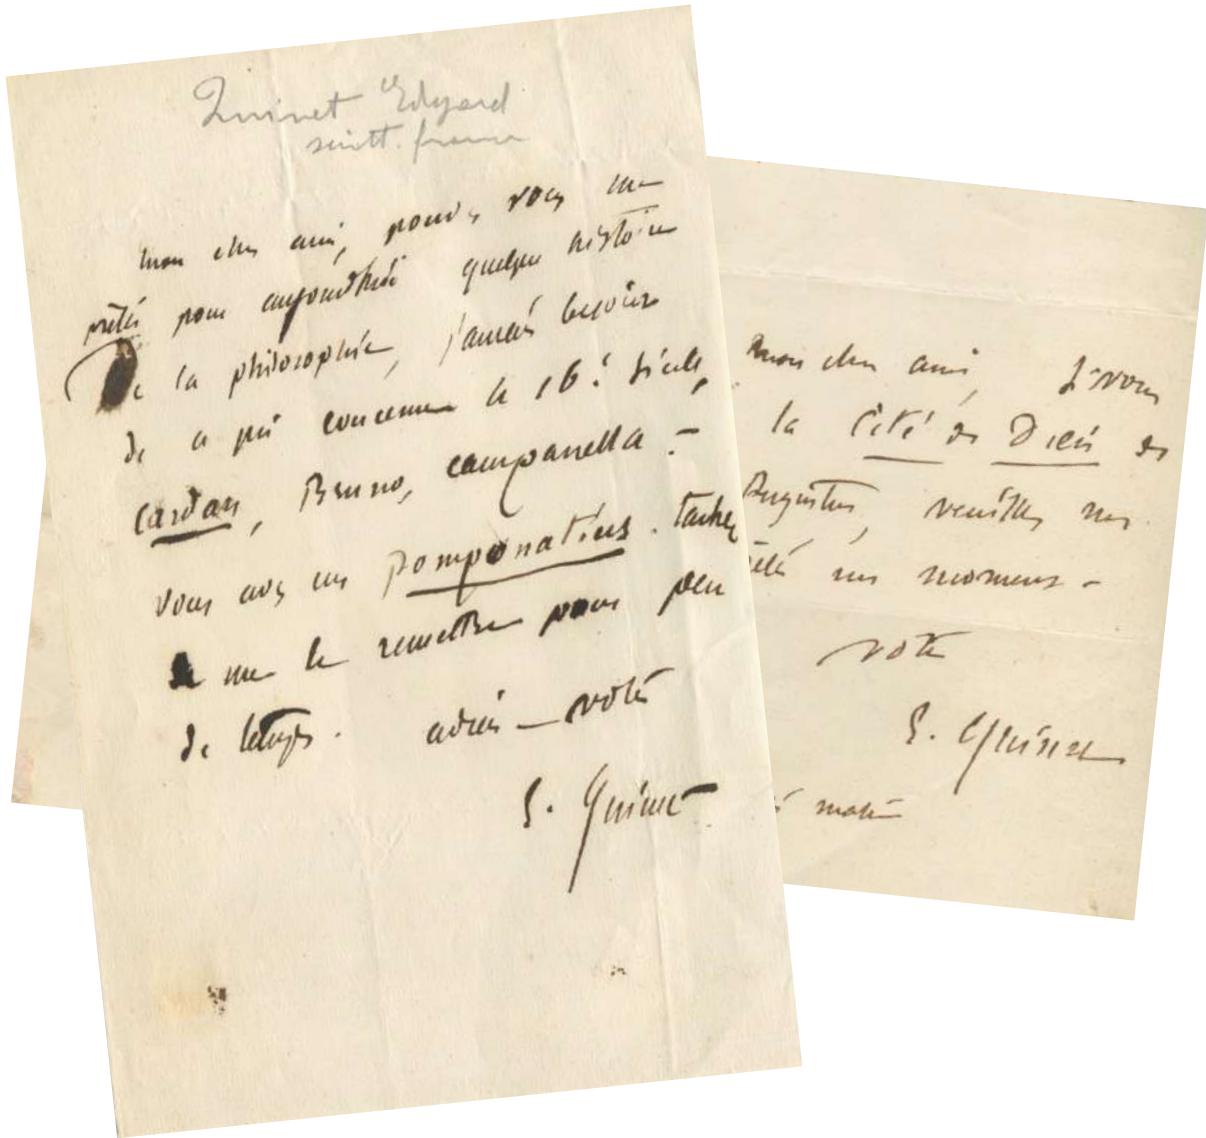 Quinet Edgard
scritt. france
mon cher ami, pouvez vous me
prêter pour aujourd'hui quelque histoire
de la philosophie, j'aurais besoin
de ce qui concerne le 16e siècle,
Cardan, Bruno, Campanella -
vous avez un Pomponatius. tachez
de me le remettre pour peu
de temps. adieu - votre
E. Quinet
mon cher ami, si vous
la Cité de Dieu de
Augustin, veuillez me
un moment -
votre
E. Quinet
matin